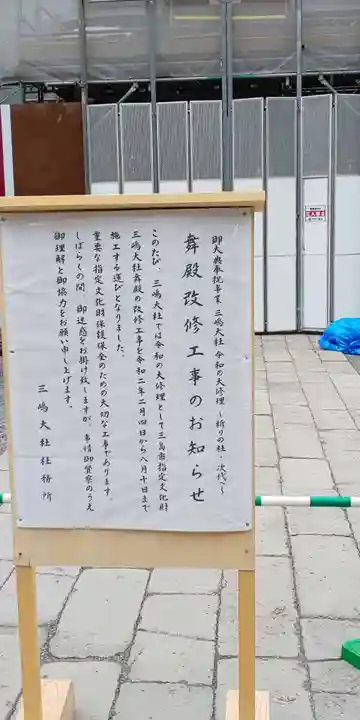 御大典奉祝事業 三嶋大社 令和の大修理 ～祈りの社・次代へ～
舞殿改修工事のお知らせ
このたび、三嶋大社では令和の大修理として三島市指定文化財
三嶋大社舞殿の改修工事を令和二年二月四日から八月十日まで
施工する運びとなりました。
重要な指定文化財保護保全のための大切な工事であります。
しばらくの間 御迷惑をお掛け致しますが、事情御賢察のうえ
御理解と御協力をお願い申し上げます。
三嶋大社社務所
立入禁止